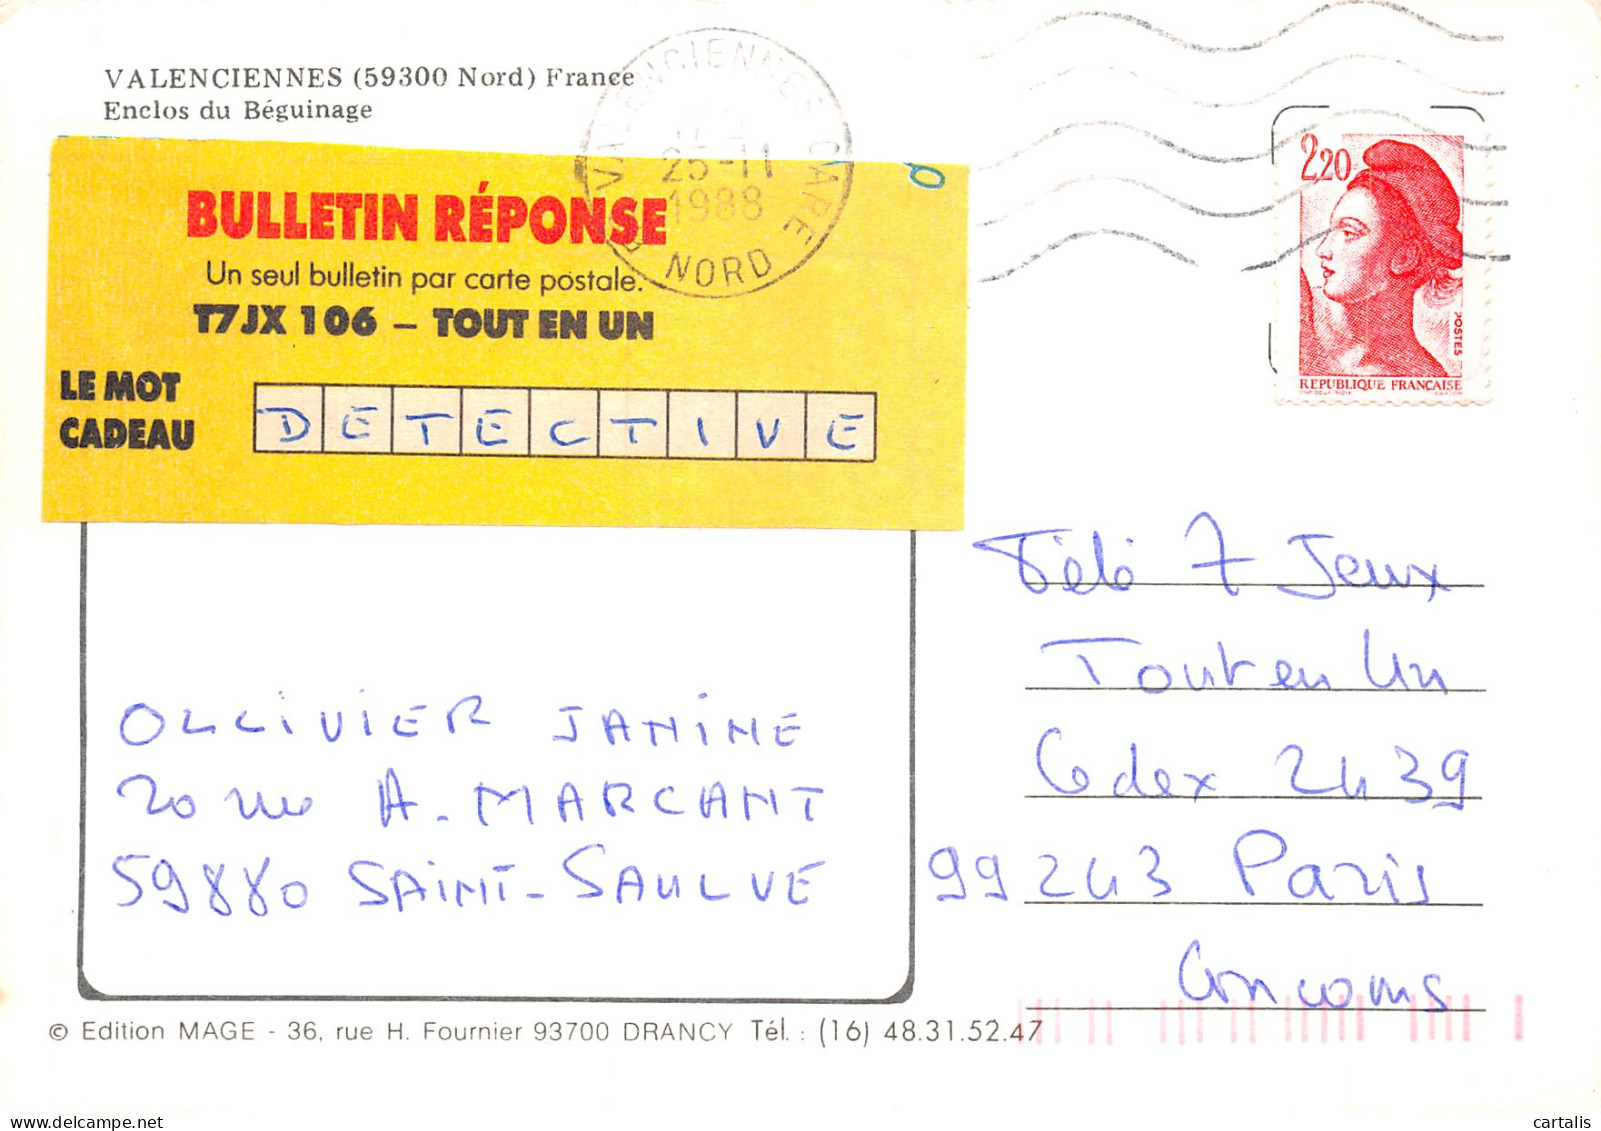 VALENCIENNES (59300 Nord) France
Enclos du Béguinage
VALENCIENNES GARE
25-11
1988
NORD
2,20
POSTES
REPUBLIQUE FRANÇAISE
BULLETIN RÉPONSE
Un seul bulletin par carte postale.
T7JX 106 – TOUT EN UN
LE MOT
CADEAU
DETECTIVE
Télé 7 Jeux
Tout en Un
Cedex 2439
99243 Paris
Concours
OLLIVIER JANINE
20 rue A. MARCANT
59880 SAINT-SAULVE
© Edition MAGE - 36, rue H. Fournier 93700 DRANCY Tél. : (16) 48.31.52.47
cartalis